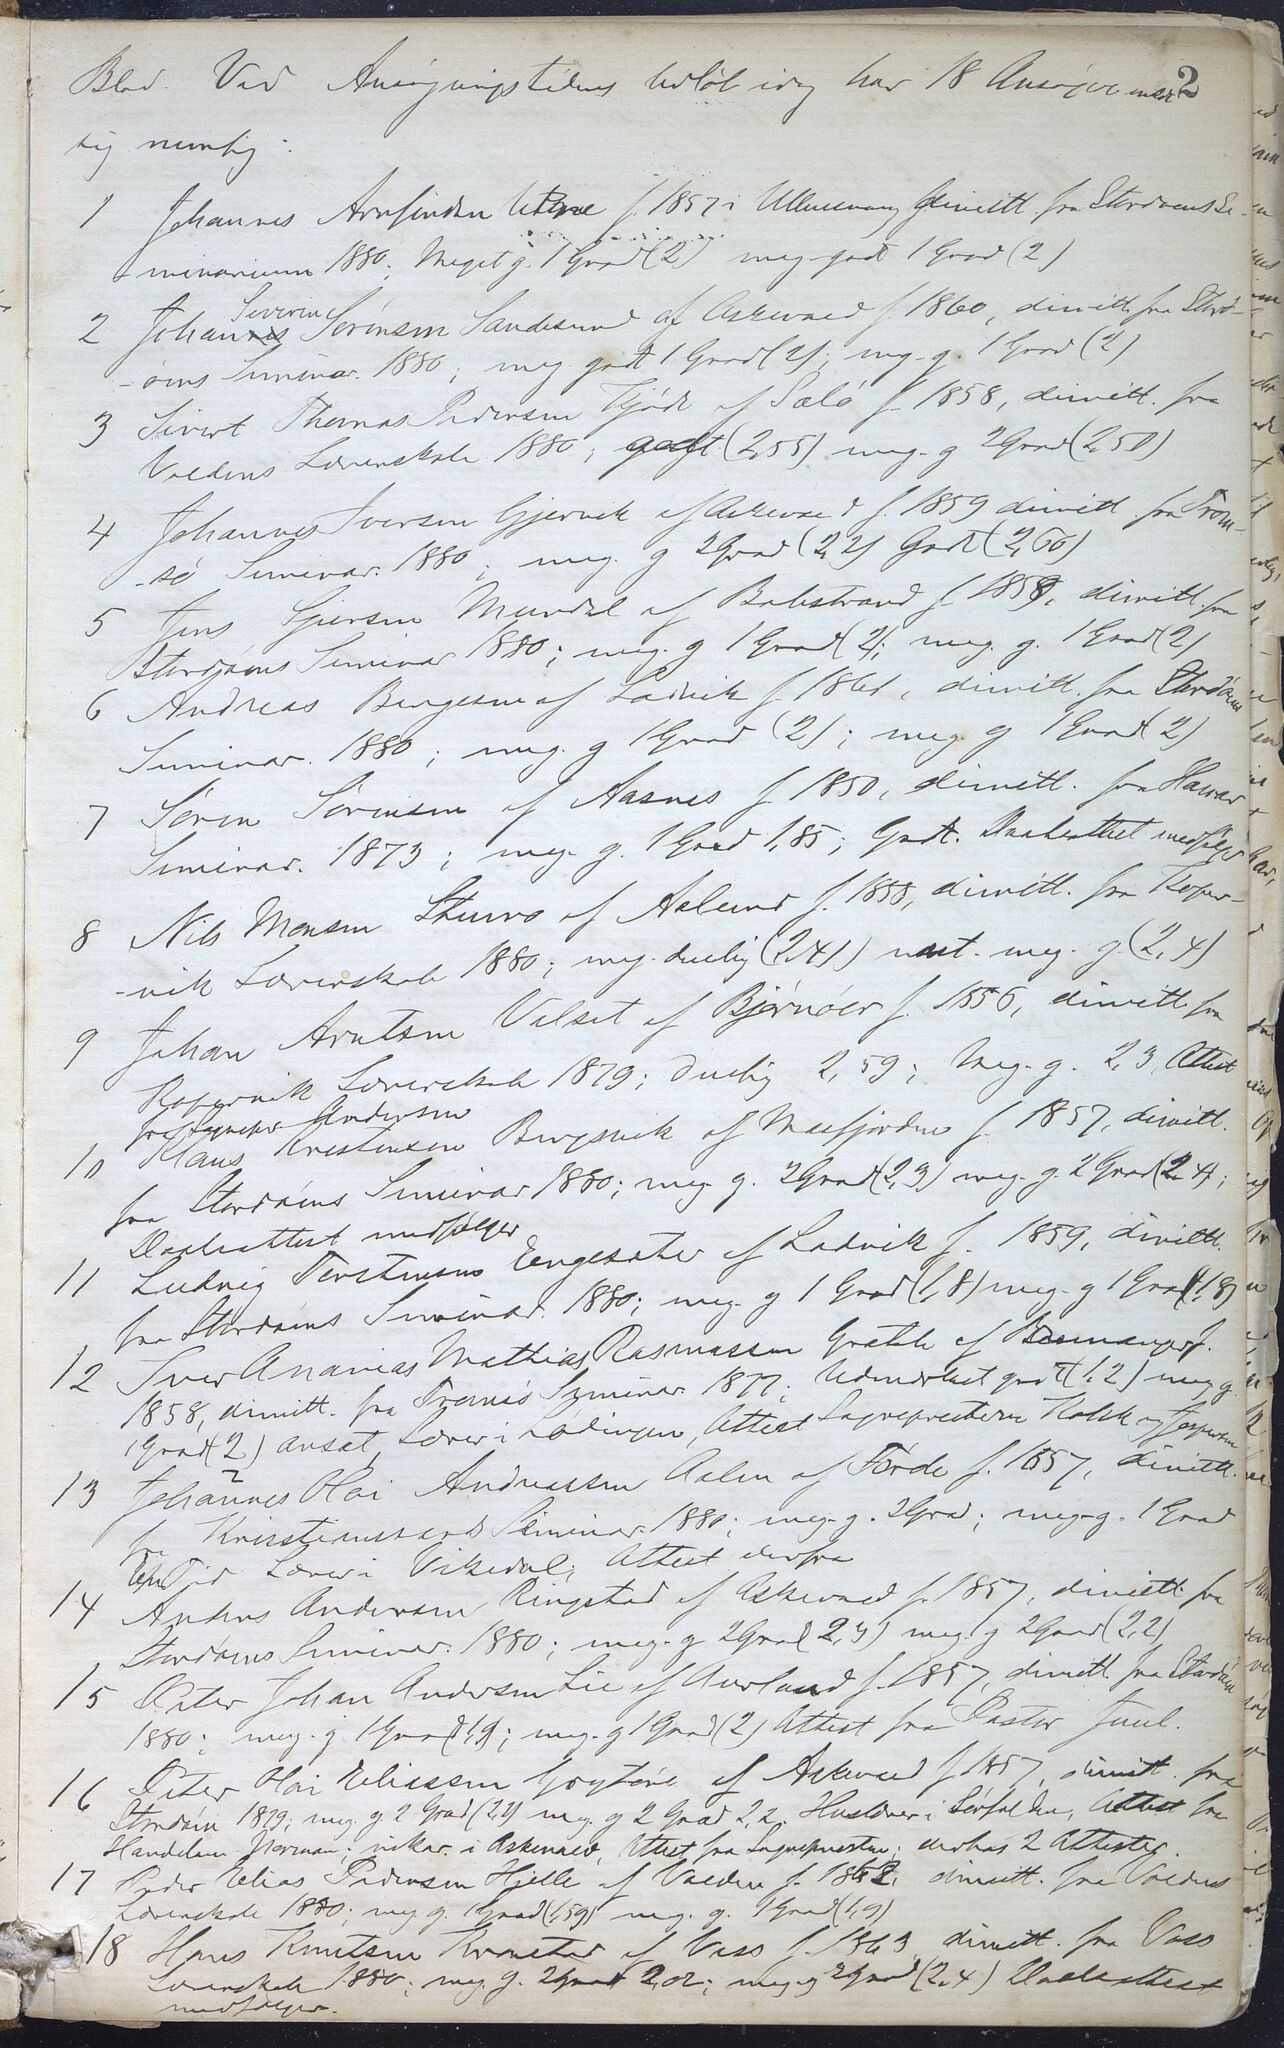 Blad. Ved Ansøgningstidens Udløb idag har 18 Ansøgere meldt 2
sig nemlig:
1 Johannes Arnfindsen Utne f. 1857 i Ullensvang dimitt. fra Stordøens Se-
-minarium 1880; Meget g. 1 Grad (2) meg. godt 1 Grad (2)
2 Johan Severin Sørensen Sandesund af Askevold f. 1860, dimitt. fra Stord-
-øens Seminar. 1880; meg. godt 1 Grad (2); meg. g. 1 Grad (2)
3 Sivert Thomas Pedersen af f. 1858, dimitt. fra
Voldens Lærerskole 1880; godt (2,55) meg. g 2 Grad (2,50)
4 Johannes Iversen Gjervik af Askevold f. 1859 dimitt. fra Trom-
-sø Seminar. 1880; meg. g 2 Grad (2,2) Godt (2,66)
5 Jens Mundal af Balestrand f. 1858, dimitt. fra
Stordøens Seminar 1880; meg. g 1 Grad (2); meg. g. 1 Grad (2)
6 Andreas af Ladvik f. 1861, dimitt. fra Stordøens
Seminar. 1880; meg. g 1 Grad (2); meg. g 1 Grad (2)
7 Søren Sørensen af Aasnes f. 1850, dimitt. fra Hamar
Seminar. 1873; meg. g. 1 Grad 1,85; Godt. Daabsattest medfølger
8 Nils Monsen af f. 1858, dimitt. fra Koper-
-vik Lærerskole 1880; meg. duelig (2,41) meg. g. (2,4)
9 Johan Arntsen Valset af Bjørnøer f. 1856, dimitt. fra
Kopervik Lærerskole 1879; Duelig 2,59; Meg. g. 2,3, Attest
fra Sognepr. Andersen
10 Hans Kristensen Bergsvik af Masfjorden f. 1857, dimitt.
fra Stordøens Seminar 1880; meg. g. 2 Grad (2,3) meg. g. 2 Grad (2,4);
Daabsattest medfølger
11 Ludvig Torstensen Engesæter af Ladvik f. 1859, dimitt.
fra Stordøens Seminar. 1880; meg. g 1 Grad (1,8) meg. g 1 Grad (1,8)
12 Iver Ananias Mathias Rasmussen af f.
1858, dimitt. fra Tromsø Seminar. 1877; Udmærket godt (1,2) meg g.
1 Grad (2) ansat Lærer i Lødingen, Attest Sognepresterne og Jespersen
13 Johannes Olai Andreassen Aalen af Førde f. 1857, dimitt.
fra Kristianssands Seminar. 1880; meg. g. 2 Grad; meg. g. 1 Grad
Tid Lærer i Vikedal; Attest derfra
14 Anders Andersen Ringstad af Askevold f. 1857, dimitt. fra
Stordøens Seminar. 1880; meg. g 2 Grad 2,3) meg. g 2 Grad (2,2)
15 Peter Johan Andersen Lie af Aurland f. 1857, dimitt. fra Stordøen
1880; meg. g 1 Grad 1,9); meg. g 1 Grad (2) Attest fra Pastor Juul.
16 Peter Olai Eliassen af Askevold f. 1857, dimitt. fra
Stordøen 1879; meg. g 2 Grad (2,2) meg. g 2 Grad 2,2. Huslærer i Sørfolden, Attest fra
Handelsm Norman; vikar. i Askevold, Attest fra Sognepresten; derhos 2 Attester.
17 Peder Elias Pedersen Hjelle af Volden f. dimitt. fra Voldens
Lærerskole 1880; meg. g. 1 Grad (1,59) meg. g. 1 Grad (1,9)
18 Hans Knutsen af Voss f. 1863 dimitt. fra Voss
Lærerskole 1880; meg. g. 2 Grad 2,02; meg. g 2 Grad (2,4) Daabsattest
medfølger.